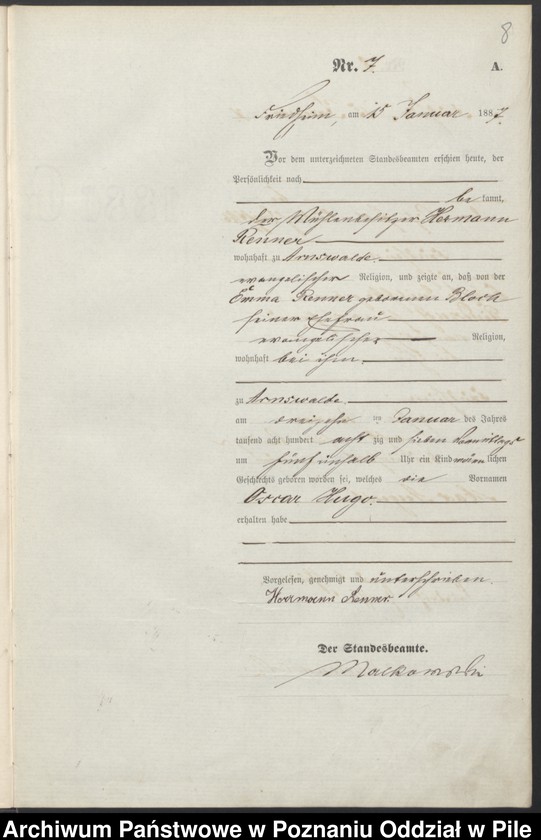 8
Nr. 7. A.
Friedheim, am 15 Januar 1887.
Vor dem unterzeichneten Standesbeamten erschien heute, der
Persönlichkeit nach
be kannt,
der Mühlenbesitzer Hermann
Renner
wohnhaft zu Arnswalde
evangelischer Religion, und zeigte an, daß von der
Emma Renner geborenen Block
seiner Ehefrau
evangelischer Religion,
wohnhaft bei ihm
zu Arnswalde
am im Januar des Jahres
tausend acht hundert acht zig und sieben
um fünf Uhr ein Kind männ lichen
Geschlechts geboren worden sei, welches die Vornamen
Oscar Hugo
erhalten habe
Vorgelesen, genehmigt und unterschrieben.
Hermann Renner.
Der Standesbeamte.
Malkowski
Archiwum Państwowe w Poznaniu Oddział w Pile